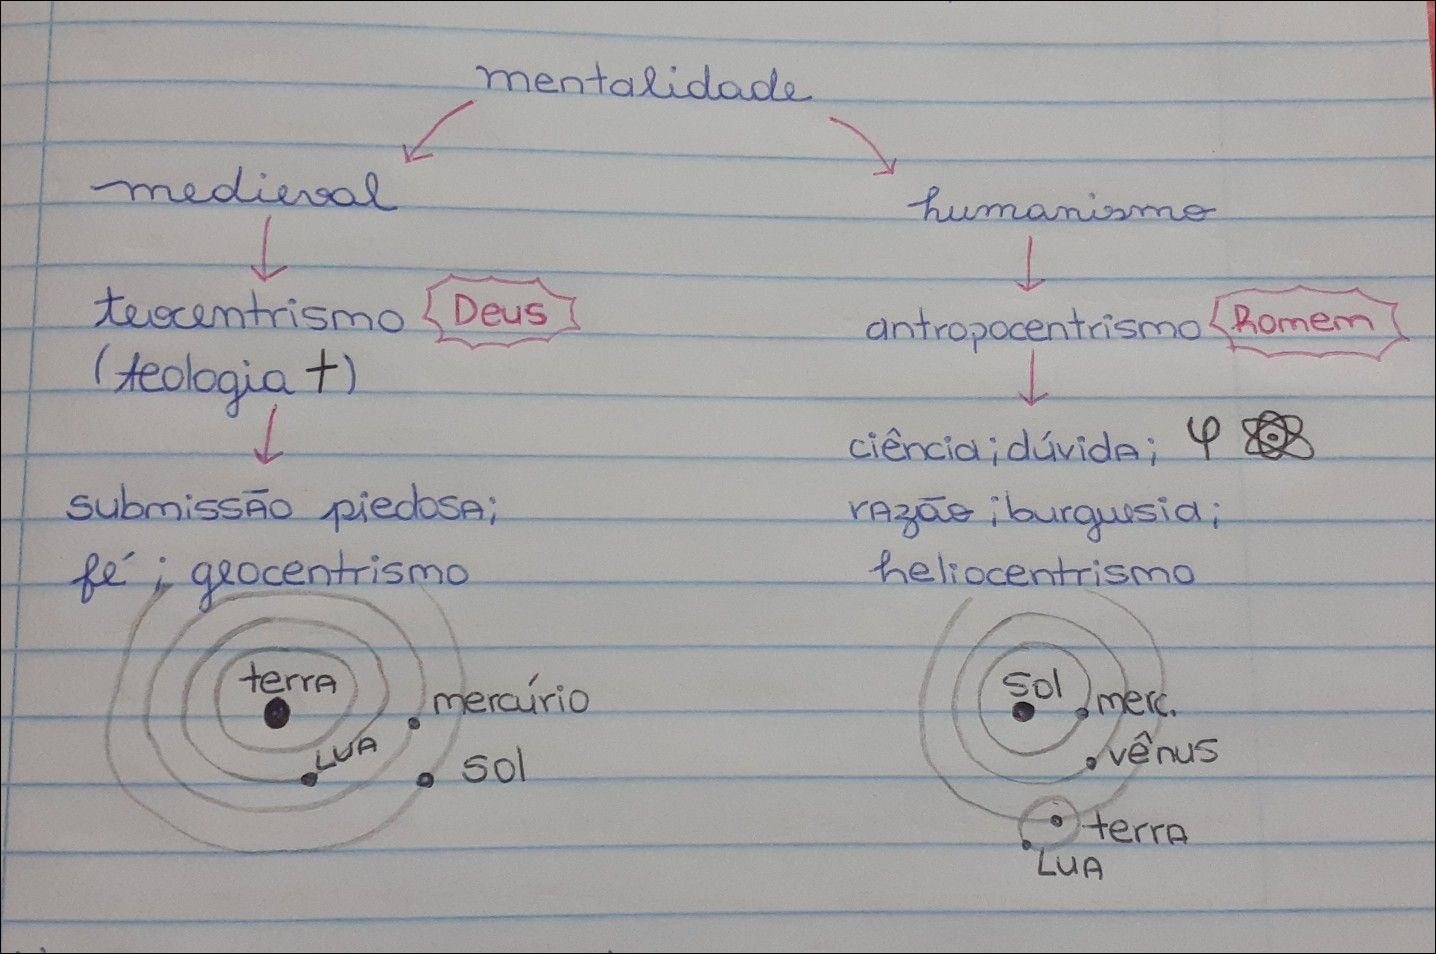 mentalidade
medieval
humanismo
teocentrismo Deus
(teologia †)
antropocentrismo Homem
ciência; dúvida; φ
submissão piedosa;
razão; burguesia;
fé; geocentrismo
heliocentrismo
terra
mercúrio
LUA
sol
sol
merc.
vênus
terra
LUA